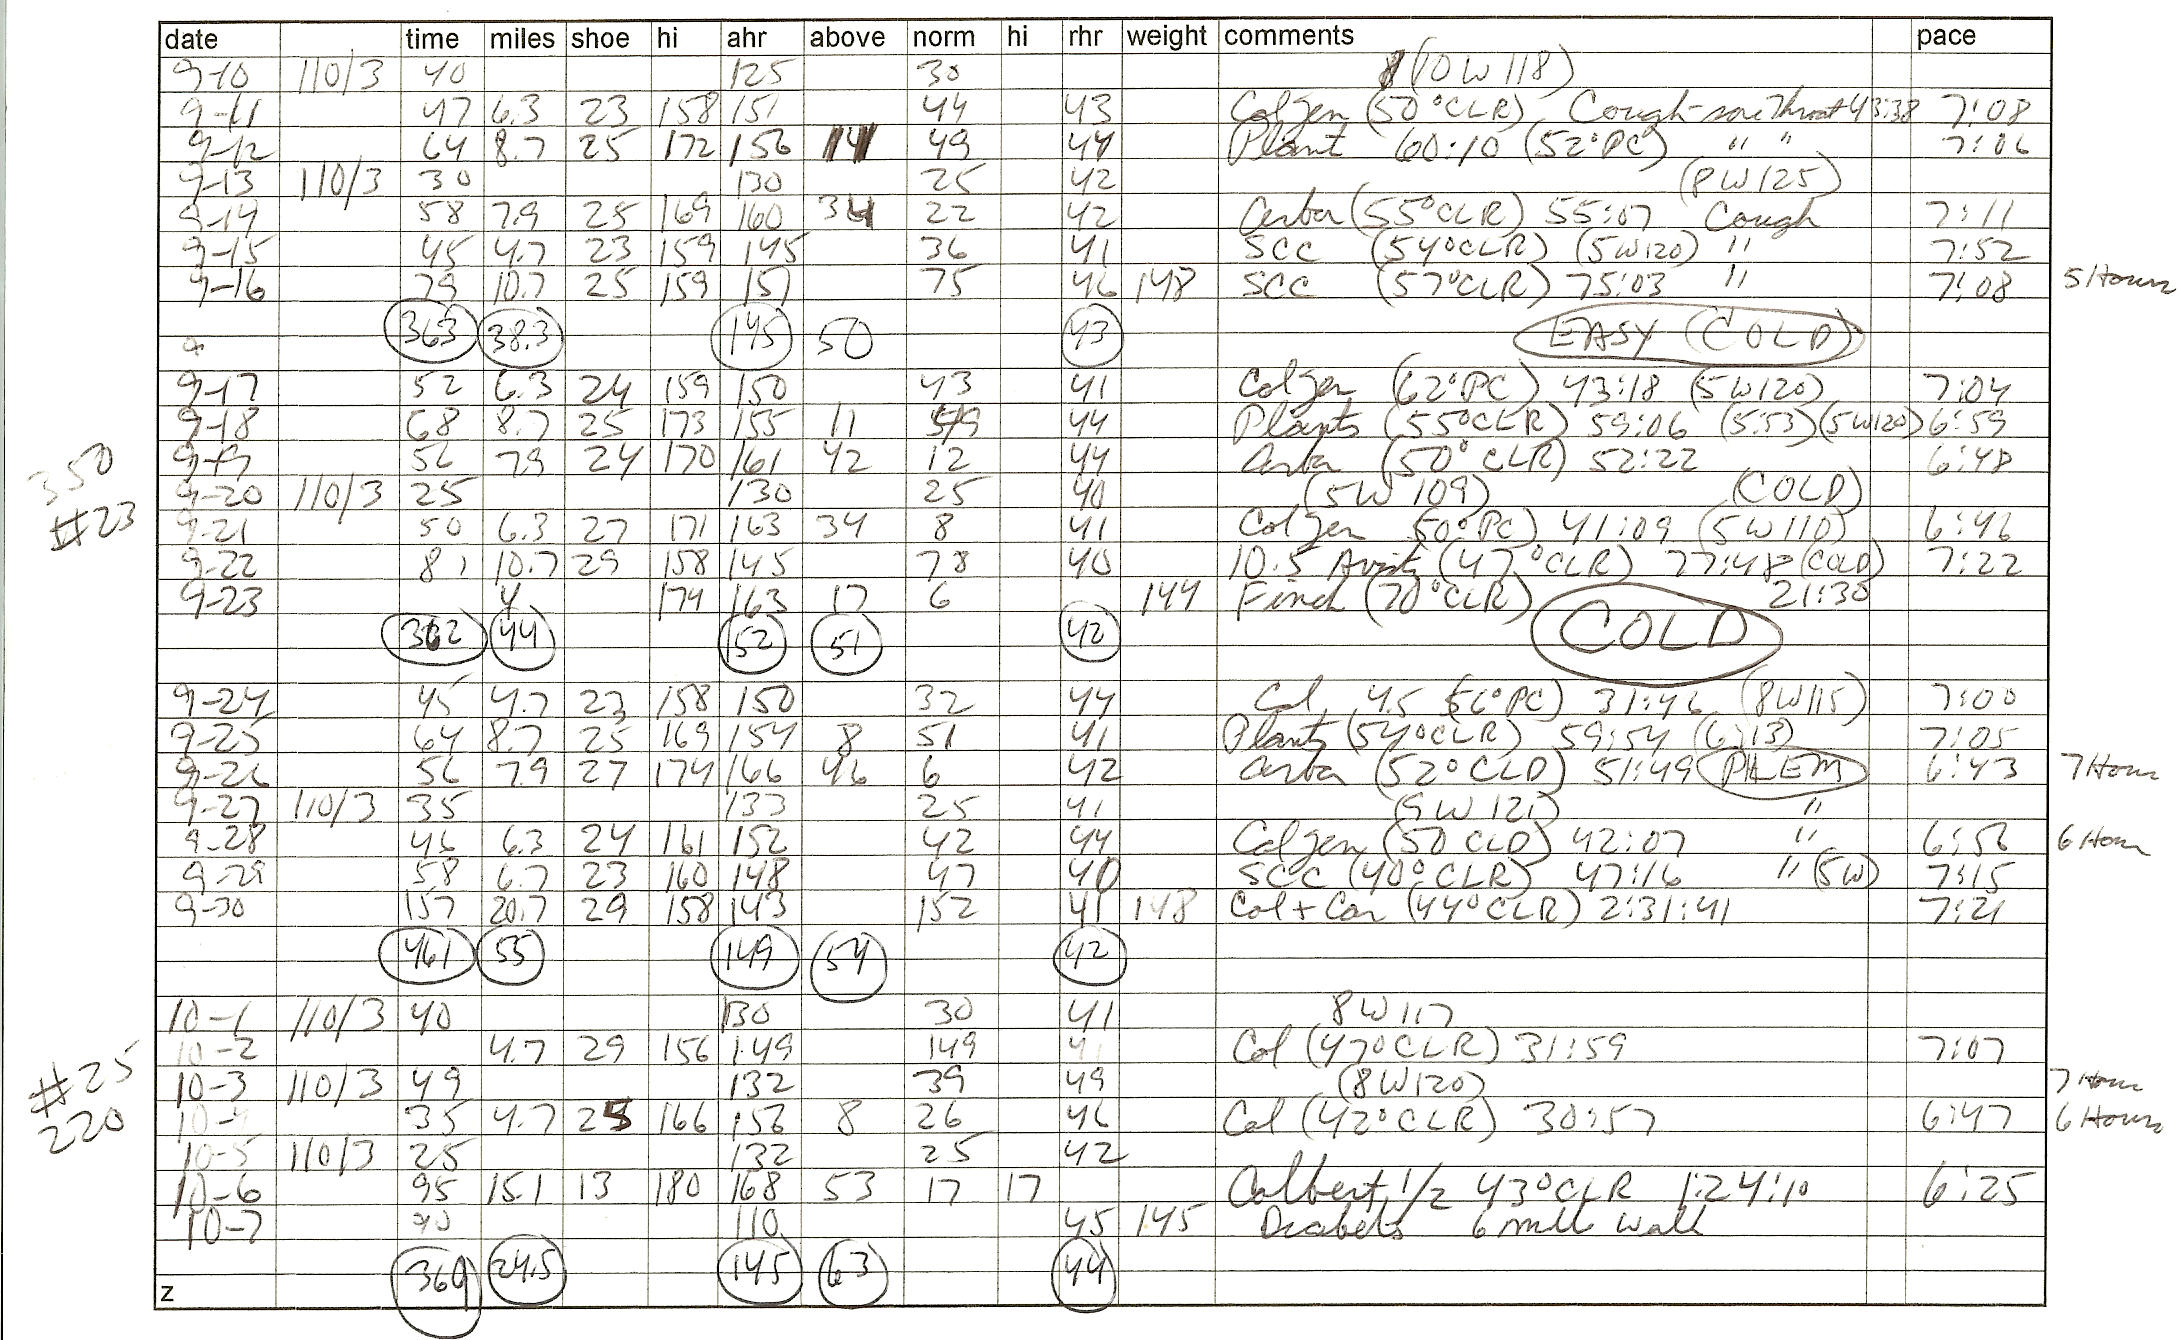 date time miles shoe hi ahr above norm hi rhr weight comments pace
9-10 110/3 40 125 30 (10W118)
9-11 47 6.3 23 158 151 44 43 Colgen (50°CLR) Cough-sore Throat 43:38 7:08
9-12 64 8.7 25 172 156 14 49 44 Plant 60:10 (52°PC) " " 7:06
9-13 110/3 30 130 25 42 (8W125)
9-14 58 7.9 25 169 160 34 22 42 (55°CLR) 55:07 Cough 7:11
9-15 45 4.7 23 159 145 36 41 SCC (54°CLR) (5W120) " 7:52
9-16 79 10.7 25 159 151 75 46 148 SCC (57°CLR) 75:03 " 7:08 5 Hours
363 38.3 145 50 43 EASY (COLD)
9-17 52 6.3 24 159 150 43 41 Colgen (62°PC) 43:18 (5W120) 7:04
9-18 68 8.7 25 173 155 11 49 44 Plants (55°CLR) 59:06 (5:53) (5W120) 6:59
9-19 56 7.9 24 170 161 42 12 44 (50°CLR) 52:22 6:48
350
9-20 110/3 25 130 25 40 (5W109) (COLD)
#23
9-21 50 6.3 27 171 163 34 8 41 Colgen 50°PC) 41:09 (5W110) 6:46
9-22 81 10.7 29 158 145 78 40 10.5 (47°CLR) 77:48 (COLD) 7:22
9-23 4 174 163 17 6 144 Finch (70°CLR) 21:30
362 44 152 51 42 COLD
9-24 45 4.7 23 158 150 32 44 Col 4.5 56°PC) 31:46 (8W115) 7:00
9-25 64 8.7 25 169 154 8 51 41 Plant (54°CLR) 59:54 (6:13) 7:05
9-26 56 7.9 27 174 166 46 6 42 (52°CLD) 51:49 PHLEM 6:43 7 Hour
9-27 110/3 35 133 25 41 (9W121) "
9-28 46 6.3 24 161 152 42 44 Colgen (50 CLD) 42:07 " 6:56 6 Hour
9-29 58 6.7 23 160 148 47 40 SCC (40°CLR) 47:16 " (5W) 7:15
9-30 157 20.7 29 158 143 152 41 148 Col + Car (44°CLR) 2:31:41 7:21
461 55 149 54 42
10-1 110/3 40 130 30 41 8W117
10-2 4.7 29 156 149 149 41 Col (47°CLR) 31:59 7:07
#25
10-3 110/3 49 132 39 49 (8W120) 7 Hour
220
10-4 35 4.7 25 166 156 8 26 46 Col (42°CLR) 30:57 6:47 6 Hours
10-5 110/3 25 132 25 42
10-6 95 15.1 13 180 168 53 17 17 Colbert 1/2 43°CLR 1:24:10 6:25
10-7 90 110 45 145 Diabets 6 mile walk
369 24.5 145 63 44
z